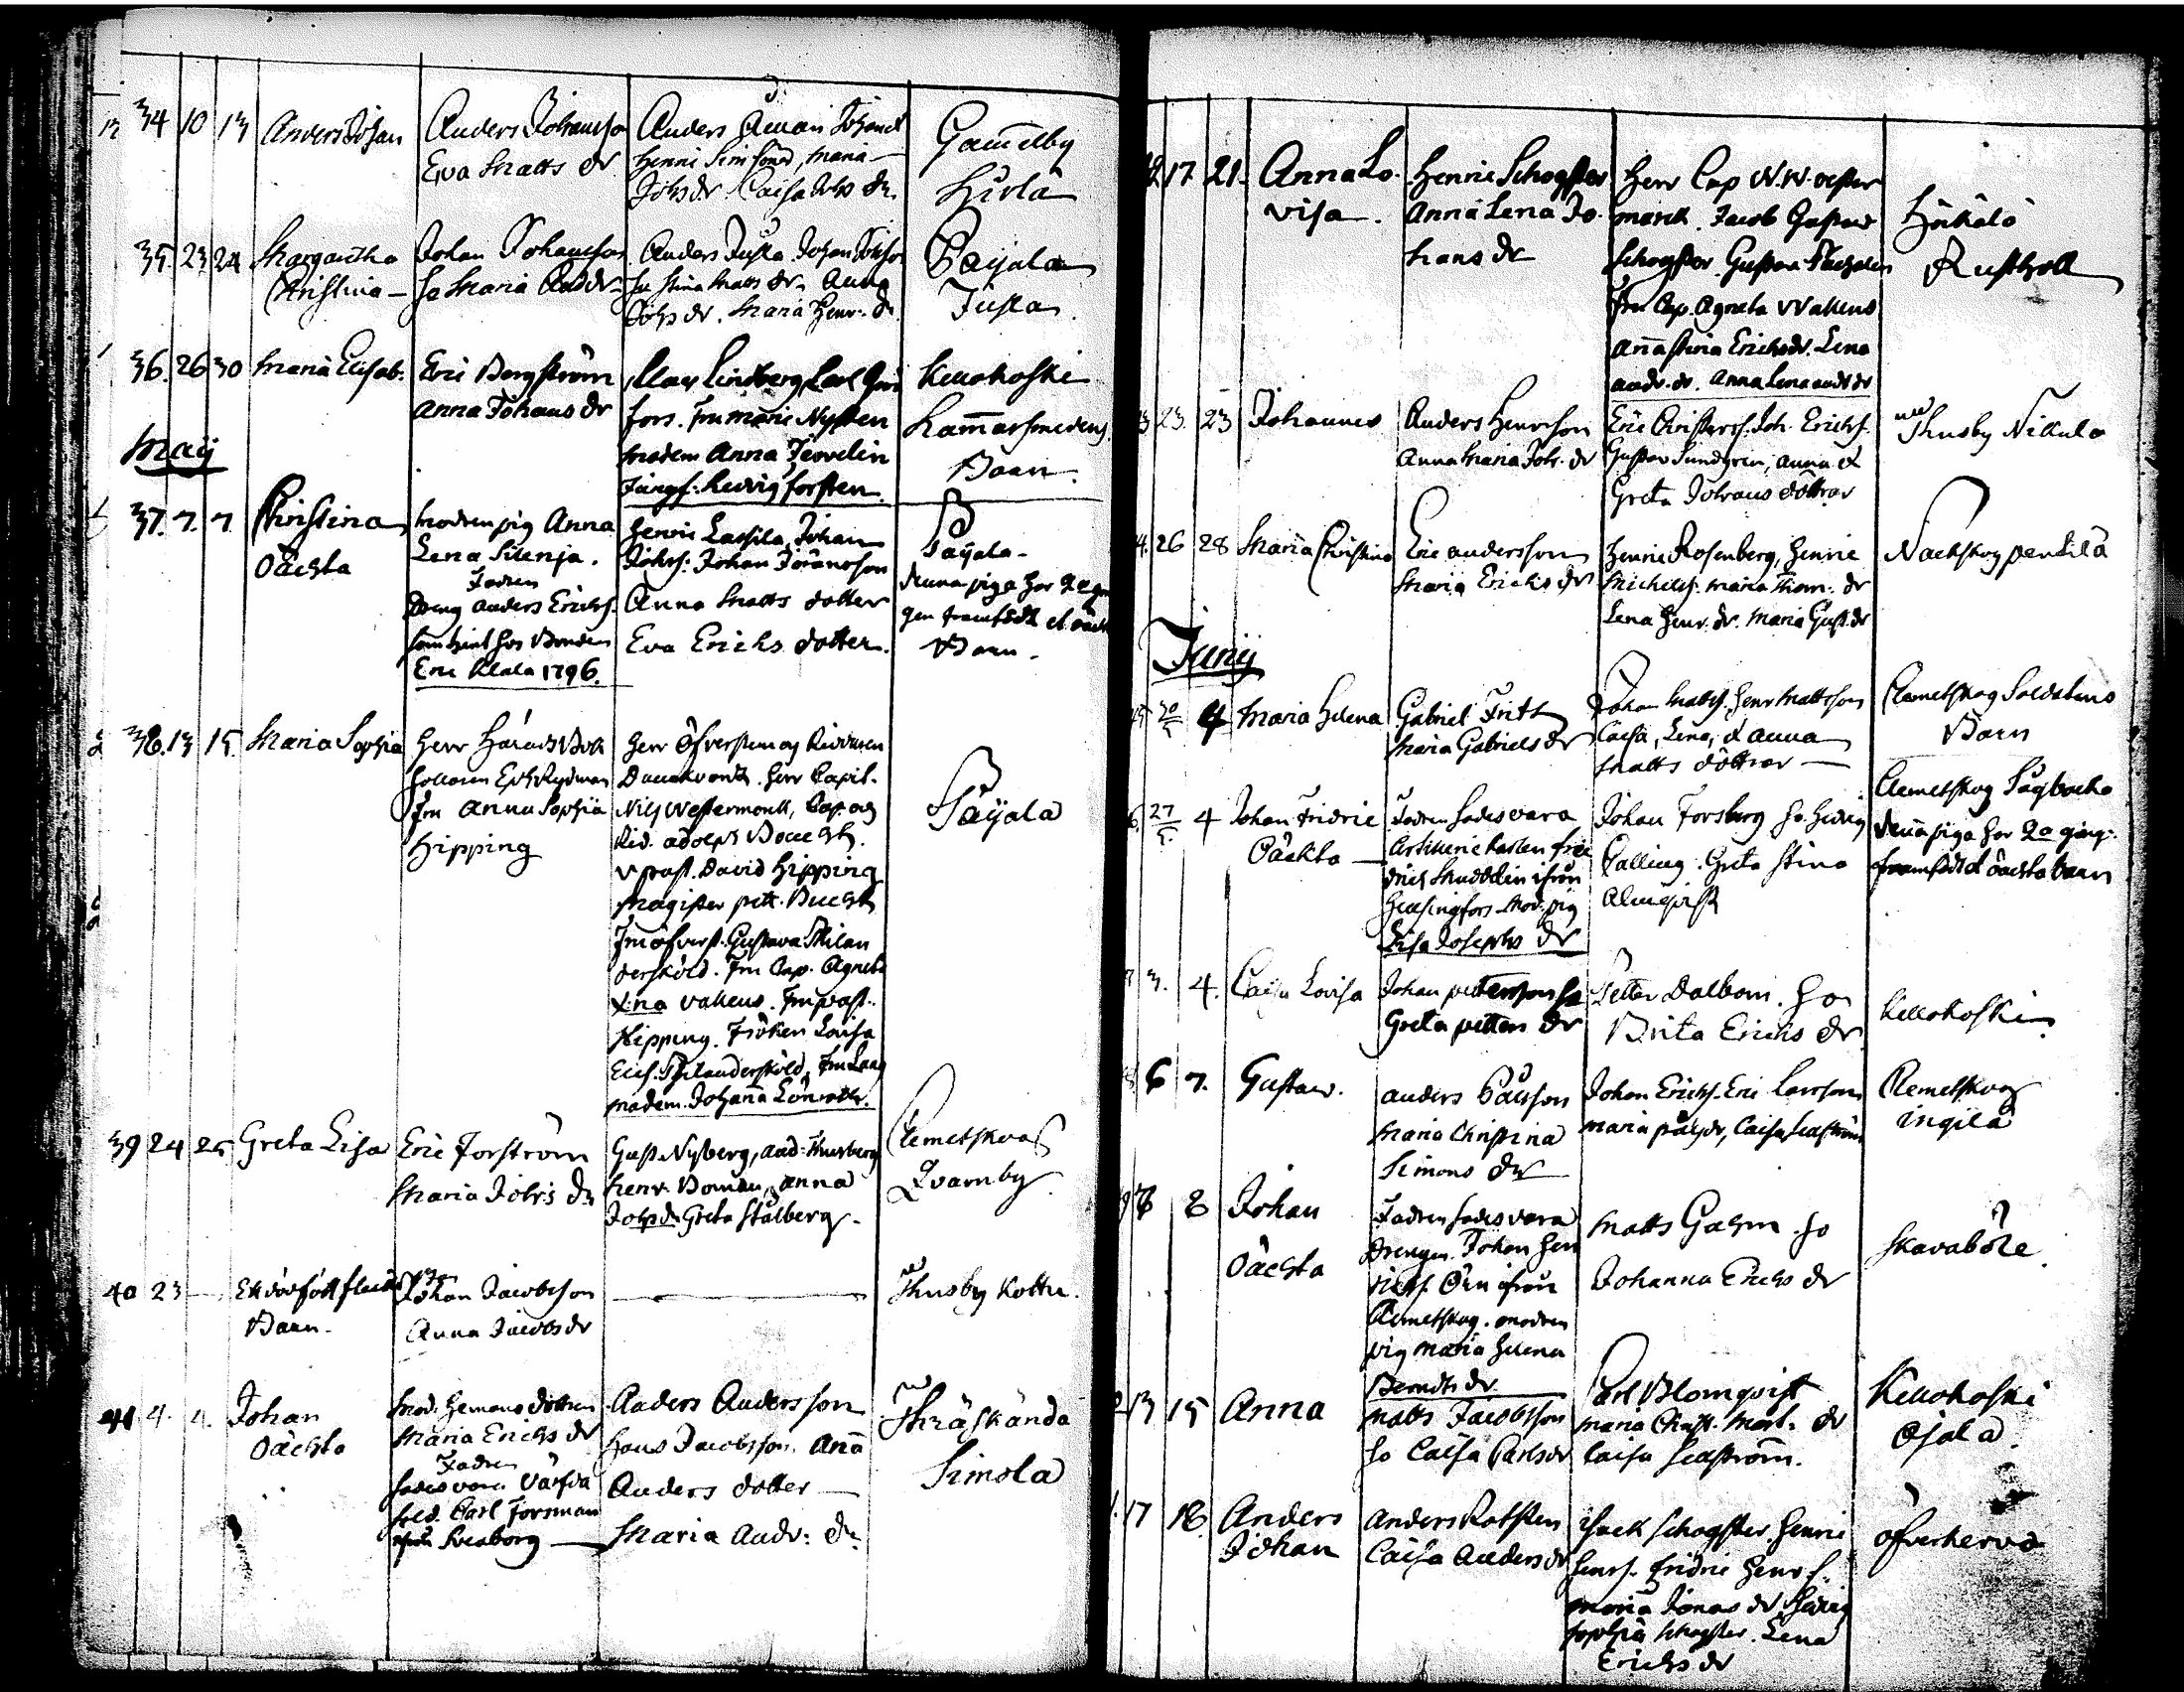 34 10 13 Anders Johan
Anders Johansson
Eva Matts dr
Anders
Henric Simsons, Maria
Johs dr. Caisa Johs dr.
Gam̅elby
Hirlä
35. 23 24 Margaretha
Christina
Johan Johansson
ho Maria And dr
Anders Juſla Johan Johsson
hu Stina Matts dr. Anna
Johs dr. Maria Henr. dr.
Paijala
Juſla
36. 26 30 Maria Elisab.
Eric Bergström
Anna Johans dr
Claes Lindberg, Carl
fors. fru Marie Nysten
Madem Anna Tervelin
Jungf: Hedvig forsten
Kellokoski
Ham̅arsmedens
Barn
Maij
37. 7. 7. Christina
Oächta
Modren pig Anna
Lena Silenja.
Fadren
Dreng Anders Erichs.
som tient hos Bonden
Eric Klala 1796.
Henric Lassila, Johan
Johss: Johan Jöransson
Anna Matts dotter
Eva Erichs dotter
Paijala
denna piga har 2e gån
gen framfödt et oäch
Barn
38. 13 15. Maria Sophia
Herr Härads Bok
hollaren Rydman
fru Anna Sophia
Hipping
Herr Öfversten og Riddaren
Herr Capit.
Nils Westermarck, Cap. og
Rid. Adolph
v past. David Hipping
Magister pett.
Fru öfverst. Gustava Thilan
dersköld. Fru Cap. Agneta
Xina Valleus. Fru past.
Hipping. Fröken Lovisa
Elis. Thilandersköld, Fru
Madem. Johan̅a Lönroth.
Paijala
39 24 25 Greta Lisa
Eric Forström
Maria Johs dr
Gust. Nyberg, And: Thusberg
Henr. Boman, Anna
Johs dr Greta Stålberg
Clemetskog
Qvarnby
40 23 Et dödfödt flicke
Barn
Johan Jacobsson
Anna Jacobs dr
Thusby Kottu.
41. 4. 4. Johan
Oächta
Mod. Hemans dottren
Maria Erichs dr
Fadren
sades vara Värfva
sold. Carl Forsman
ifrån Sveaborg
Anders Andersson
Hans Jacobsson. An̅a
Anders dotter
Maria Andr: dr
Thräskända
Simola
17 21. Anna Lo-
visa
Henric Schogster
Anna Lena Jo-
hans dr
Herr Cap N. W. vester
marck. Jacob Gustav
Schogster. Gustava
Fru Cap. Agneta Walleus
An̅a Stina Erichsdr. Lena
Andr. dr. Anna Lena Andr dr
Hökälö
Rusthåll
23. 23 Johannes
Anders Henrsson
Anna Maria Joh. dr
Eric Christerss. Joh. Erichs.
Gustav Sundgren, Anna &
Greta Johans döttrar
Thusby Nikula
26 28 Maria Christina
Eric Andersson
Maria Erichs dr
Henric Rosenberg, Henric
Michelss. Maria Thom. dr
Lena Henr. dr. Maria Gust. dr
Nackskog Pentilä
Junij
30/5 4 Maria Helena
Gabriel Frith
Maria Gabriels dr
Johan Matss. Henr Mattsson
Caisa, Lena, & Anna
Matts döttrar
Clemetskog Soldatens
Barn
27/5. 4 Johan Fridric
Oächta
Fadren sades vara
Artilleri karlen frie
drich Skuddelin ifrån
Helsingfors Mod. pig
Lisa Josephs dr
Johan Forsberg ho Hedvig
Palling. Greta Stina
Almqvist
Clemetskog Sågbacka
den̅a piga har 2a gång:
framfödt oächta barn
3. 4. Caisa Lovisa
Johan pettersson ho
Greta petters dr
Petter Dalbom. ho
Brita Erichs dr
Kellokoski
6 7. Gustav.
Anders Pålsson
Maria Christina
Simons dr
Johan Erichs. Eric Larsson
Maria pålsdr, Caisa Seaström
Clemetskog
Ingilä
8 Johan
Oächta
Fadren sades vara
Drengen Johan Hen
richs. Örn ifrån
Clemetskog. modren
pig Maria Helena
Berndts dr
Matts Galgrn. ho
Johanna Erichs dr
Skavaböle
13 15 Anna
Matts Jacobsson
ho Caisa Carls dr
Carl Blomqvist
Maria Christ. Mart. dr
Caisa Seaström.
Kellokoski
Ojala
17 18 Anders
Johan
Anders Rotsten
Caisa Anders dr
Isack Schogster Henric
Henrs. Fridric Henrs.
Maria Jonas dr Hedvig
Sophia Schogster. Lena
Erichs dr
Öfverkervo